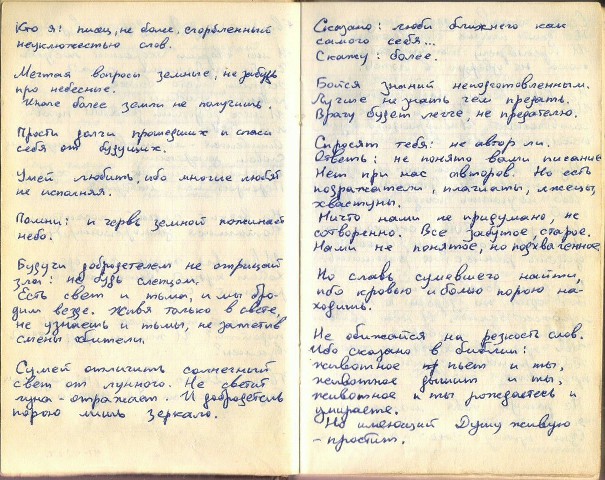 Кто я: писец, не более, сгорбленный
неуклюжестью слов.
Мечтая вопросы земные, не забудь
про небесные.
Иначе более земли не получишь.
Прости долги прошедших и спаси
себя от будущих.
Умей любить, ибо многие любят
не исполняя.
Помни: и червь земной пожинает
небо.
Будучи добродетелем не отрицай
зла: не будь слепцом.
Есть свет и тьма, и мы бро-
дим везде. Живя только в свете,
не узнаешь и тьмы, не заметив
смены обители.
Сумей отличить солнечный
свет от лунного. Не светит
луна - отражает. И добродетель
порою лишь зеркало.
Сказано: люби ближнего как
самого себя...
Скажу: более.
Бойся знаний неподготовленным.
Лучше не знать чем предать.
Врагу будет легче, не предателю.
Спросят тебя: не автор ли.
Ответь: не понято вами писание
Нет при нас авторов. Но есть
подражатели, плагиаты, лжецы,
хвастуны.
Ничто нами не придумано, не
сотворенно. Все забытое, старое.
Нами не понятое, но подхваченное.
Но славь сумевшего найти,
ибо кровью и болью порою на-
ходишь.
Не обижайся на резкость слов.
Ибо сказано в библии:
животное пьет и ты,
животное дышит и ты,
животное и ты рождаетесь и
умираете.
Но имеющий Душу живую
- простит.